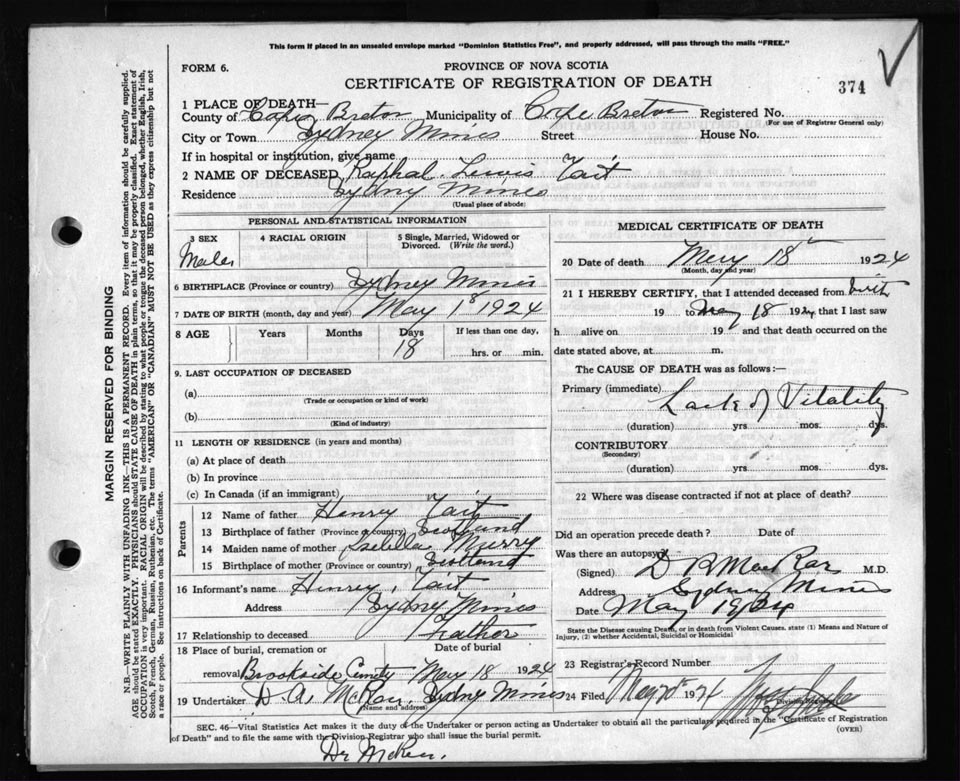 This form if placed in an unsealed envelope marked "Dominion Statistics Free", and properly addressed, will pass through the mails "FREE."
FORM 6.
PROVINCE OF NOVA SCOTIA
CERTIFICATE OF REGISTRATION OF DEATH
374
1 PLACE OF DEATH—
County of Cape Breton Municipality of Cape Breton Registered No.
(For use of Registrar General only)
City or Town Sydney Mines Street House No.
If in hospital or institution, give name
2 NAME OF DECEASED Raphal Lewis Tait
Residence Sydney Mines
(Usual place of abode)
PERSONAL AND STATISTICAL INFORMATION
3 SEX Male
4 RACIAL ORIGIN
5 Single, Married, Widowed or Divorced. (Write the word.)
6 BIRTHPLACE (Province or country) Sydney Mines
7 DATE OF BIRTH (month, day and year) May 1st 1924
8 AGE Years Months Days 18
If less than one day, hrs. or min.
9. LAST OCCUPATION OF DECEASED
(a)
(Trade or occupation or kind of work)
(b)
(Kind of industry)
11 LENGTH OF RESIDENCE (in years and months)
(a) At place of death
(b) In province
(c) In Canada (if an immigrant)
Parents
12 Name of father Henry Tait
13 Birthplace of father (Province or country) Scotland
14 Maiden name of mother Isebella Murry
15 Birthplace of mother (Province or country) Scotland
16 Informant's name Henry Tait
Address Sydney Mines
17 Relationship to deceased Father
18 Place of burial, cremation or removal Brookside Cemity
Date of burial May 18 1924
19 Undertaker D. A. McRae, Sydney Mines
(Name and address)
MEDICAL CERTIFICATE OF DEATH
20 Date of death May 18 1924
(Month, day and year)
21 I HEREBY CERTIFY, that I attended deceased from birth
19 to May 18 1924 that I last saw
h alive on 19 and that death occurred on the
date stated above, at m.
The CAUSE OF DEATH was as follows:—
Primary (immediate) Lack of Vitality
(duration) yrs mos. dys.
CONTRIBUTORY
(Secondary)
(duration) yrs mos. dys.
22 Where was disease contracted if not at place of death?
Did an operation precede death? Date of
Was there an autopsy?
(Signed) M.D.
Address Sydney Mines
Date May 1924
State the Disease causing Death, or in death from Violent Causes, state (1) Means and Nature of
Injury, (2) whether Accidental, Suicidal or Homicidal
23 Registrar's Record Number
24 Filed May 20th 1924
Division Registrar
SEC. 46—Vital Statistics Act makes it the duty of the Undertaker or person acting as Undertaker to obtain all the particulars required in the "Certificate of Registration
of Death" and to file the same with the Division Registrar who shall issue the burial permit.
(OVER)
MARGIN RESERVED FOR BINDING
N.B.—WRITE PLAINLY WITH UNFADING INK—THIS IS A PERMANENT RECORD. Every item of information should be carefully supplied.
AGE should be stated EXACTLY. PHYSICIANS should STATE CAUSE OF DEATH in plain terms, so that it may be properly classified. Exact statement of
OCCUPATION is very important. RACIAL ORIGIN will be described by stating to what people or tongue the deceased person belonged, whether English, Irish,
Scotch, French, German, Russian, Ruthenian, etc. The terms "AMERICAN" OR "CANADIAN" MUST NOT BE USED as they express citizenship but not
a race or people. See instructions on back of Certificate.